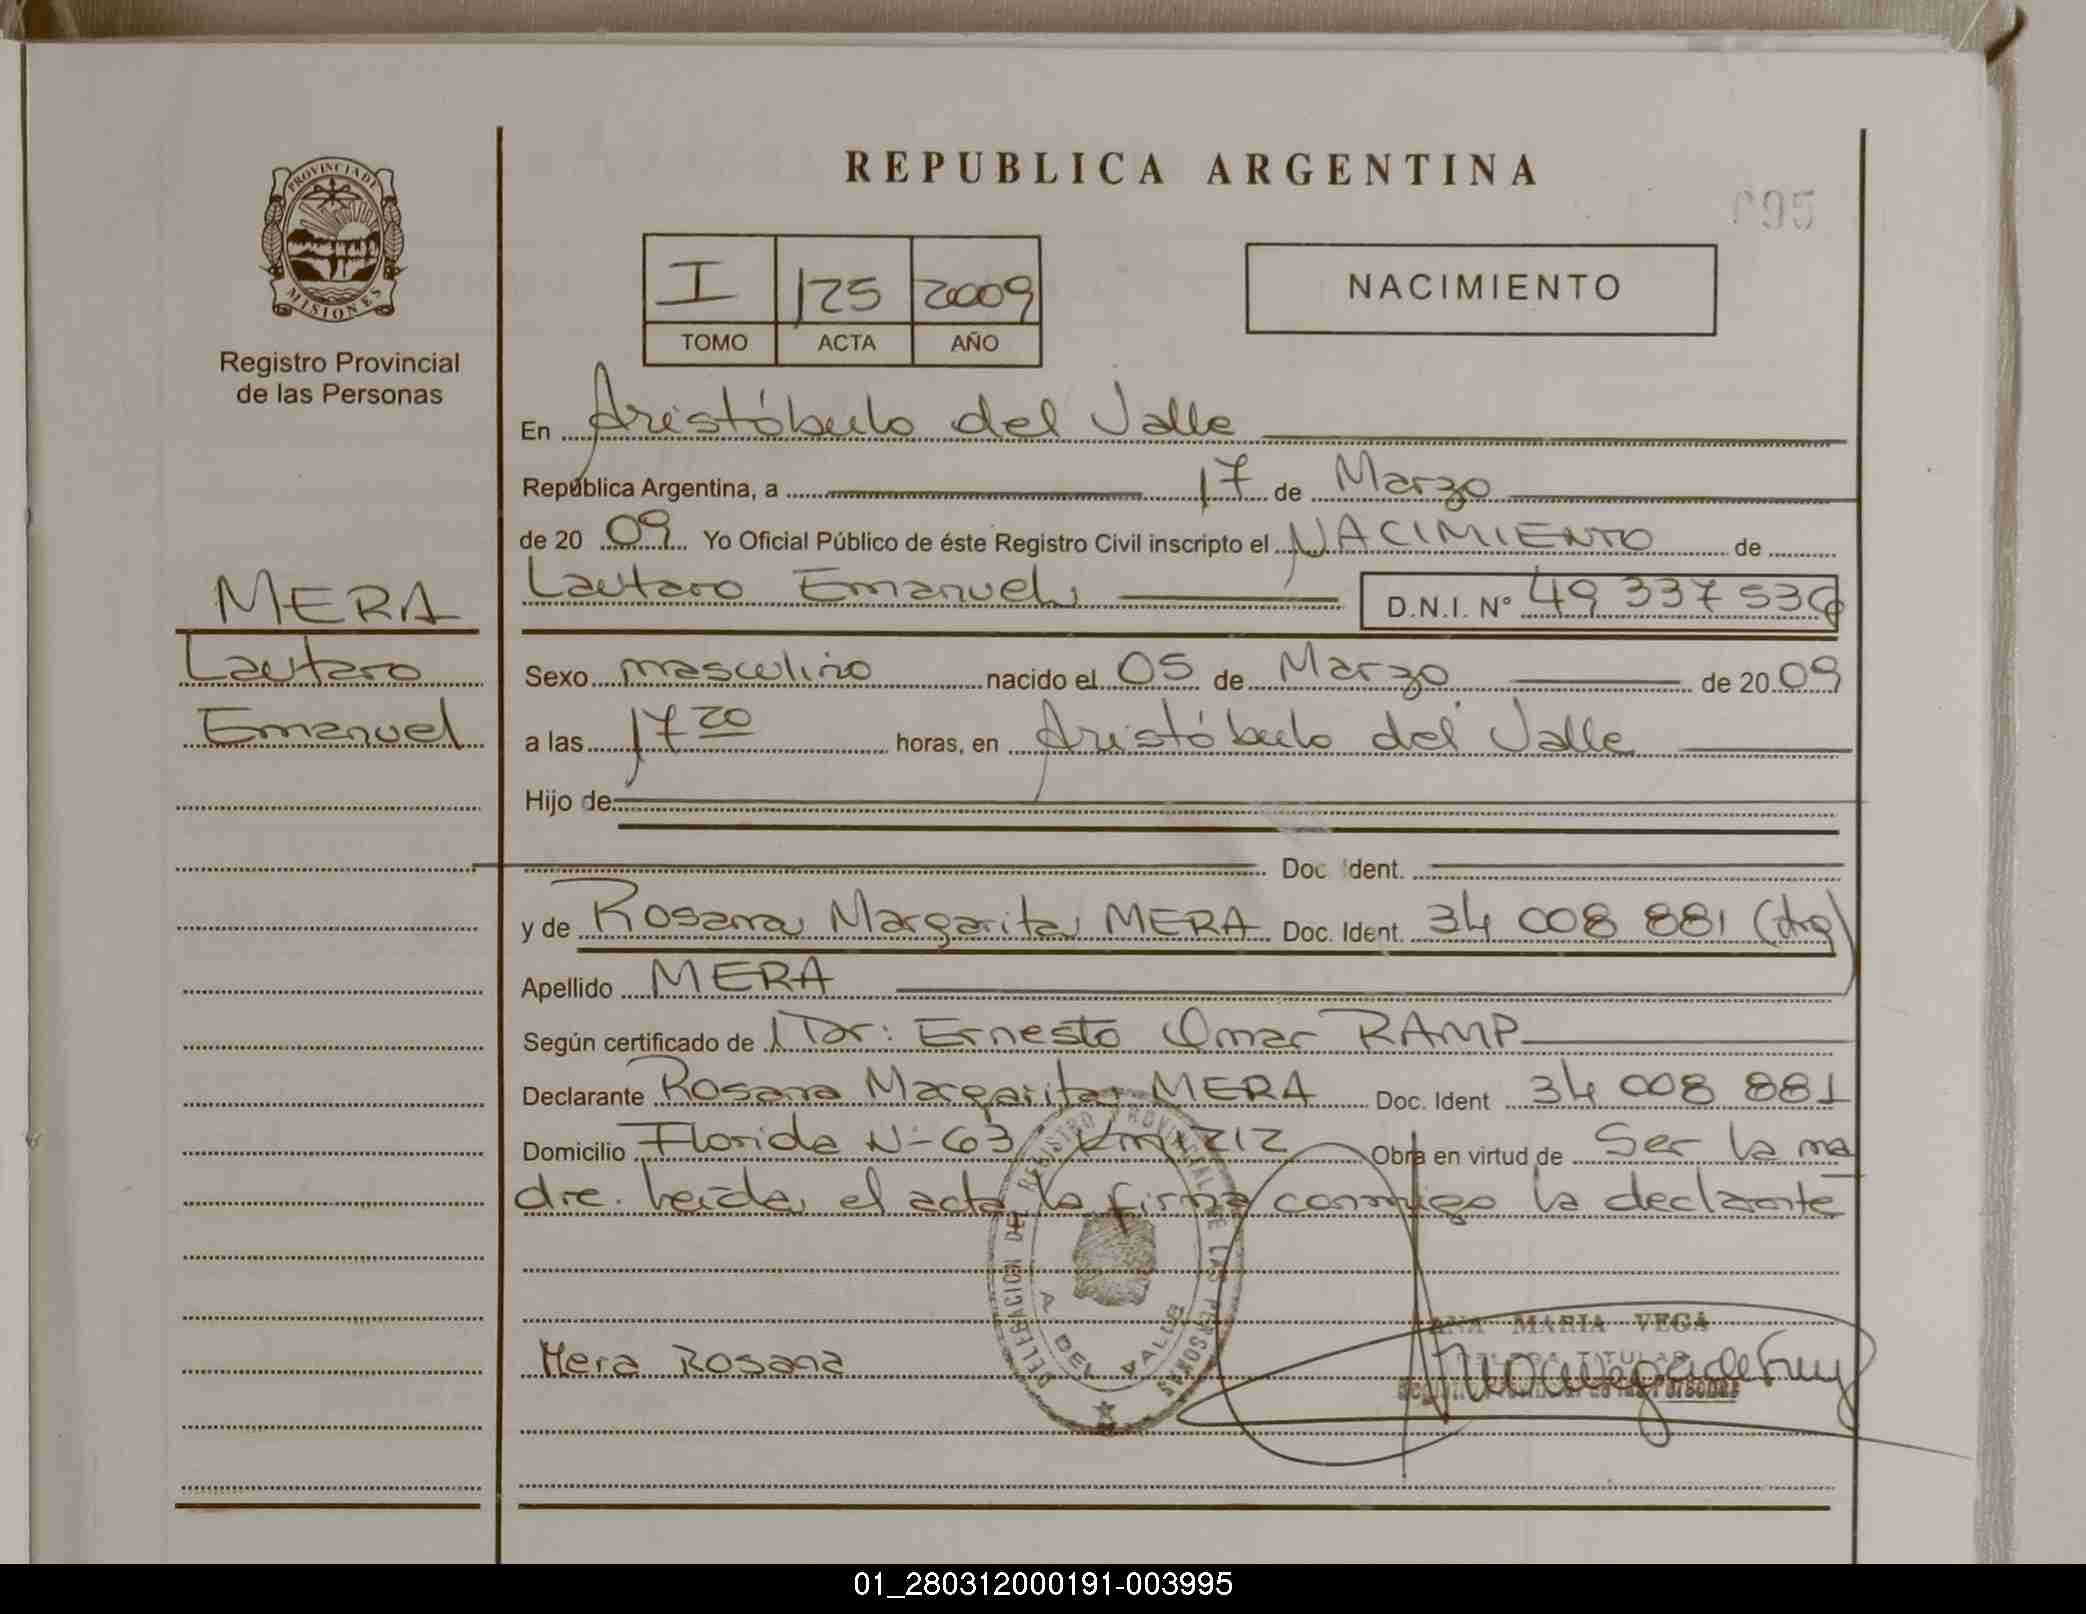 PROVINCIA DE
MISIONES
Registro Provincial
de las Personas
REPUBLICA ARGENTINA
095
I 125 2009
TOMO ACTA AÑO
NACIMIENTO
En Aristóbulo del Valle
República Argentina, a 17 de Marzo
de 20 09 Yo Oficial Público de éste Registro Civil inscripto el NACIMIENTO de
MERA
Lautaro
Emanuel
Lautaro Emanuel D.N.I. N° 49 337 536
Sexo masculino nacido el 05 de Marzo de 20 09
a las 17 20 horas, en Aristóbulo del Valle
Hijo de
Doc Ident.
y de Rosana Margarita MERA Doc. Ident. 34 008 881 (Arg)
Apellido MERA
Según certificado de Dr: Ernesto Omar RAMP
Declarante Rosana Margarita MERA Doc. Ident 34 008 881
Domicilio Florida N-63 Km 1212 Obra en virtud de Ser la ma
dre. leída el acta la firma conmigo la declarante
DELEGACION DEL REGISTRO PROVINCIAL DE LAS PERSONAS
A DEL VALLE
Mera Rosana
ANA MARIA VEGA
TITULAR
01_280312000191-003995